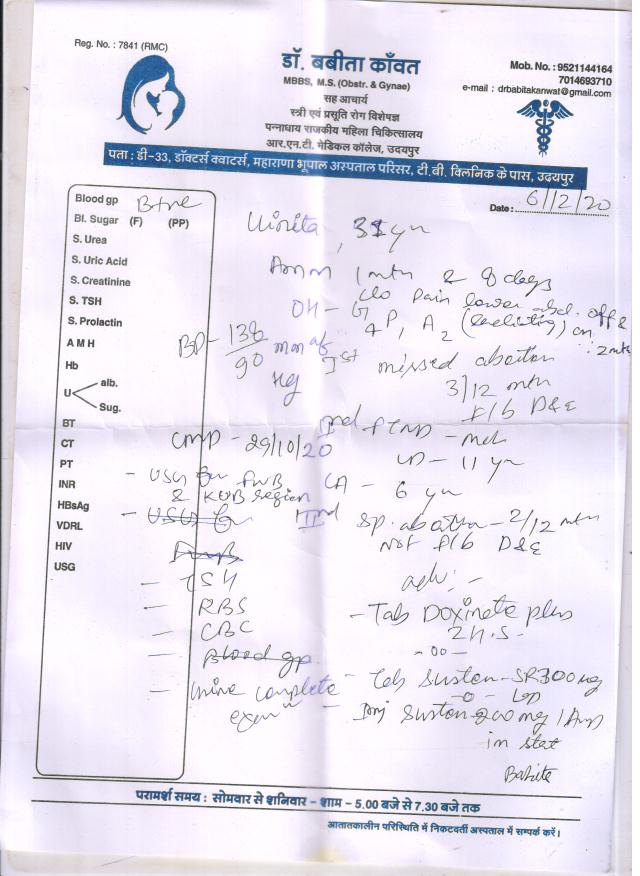 Reg. No. : 7841 (RMC)
डॉ. बबीता काँवत
MBBS, M.S. (Obstr. & Gynae)
सह आचार्य
स्त्री एवं प्रसूति रोग विशेषज्ञ
पन्नाधाय राजकीय महिला चिकित्सालय
आर.एन.टी. मेडिकल कॉलेज, उदयपुर
Mob. No. : 9521144164
7014693710
e-mail : drbabitakanwat@gmail.com
पता : डी-33, डॉक्टर्स क्वाटर्स, महाराणा भूपाल अस्पताल परिसर, टी.बी. क्लिनिक के पास, उदयपुर
Date: 6/12/20
Blood gp B+ve
Bl. Sugar (F) (PP)
S. Urea
S. Uric Acid
S. Creatinine
S. TSH
S. Prolactin
A M H
Hb
U alb.
Sug.
BT
CT
PT
INR
HBsAg
VDRL
HIV
USG
35 yr
1 mth & 8 days
c/o Pain lower abd. off &
OH - G4 P1 A2
BP - 138/90 mm of Hg
Ist missed abortion
3/12 mth
f/b D&E
LMP - 29/10/20
IInd FTND -
LD - 11 yr
- USG for FWB
& KUB region
LA - 6 yr
- USG for
IIIrd sp. abortion - 2/12 mth
Not f/b D&E
adv: -
- TSH
- RBS
- CBC
- Blood gp
- Urine complete
exam
- Tab Doxinate plus
2 H.S.
- 00 -
- Tab Susten - SR 300 mg
- 0 -
- Inj Susten 200 mg 1 Amp
im stat
Babita
परामर्श समय : सोमवार से शनिवार - शाम - 5.00 बजे से 7.30 बजे तक
आतातकालीन परिस्थिति में निकटवर्ती अस्पताल में सम्पर्क करें।